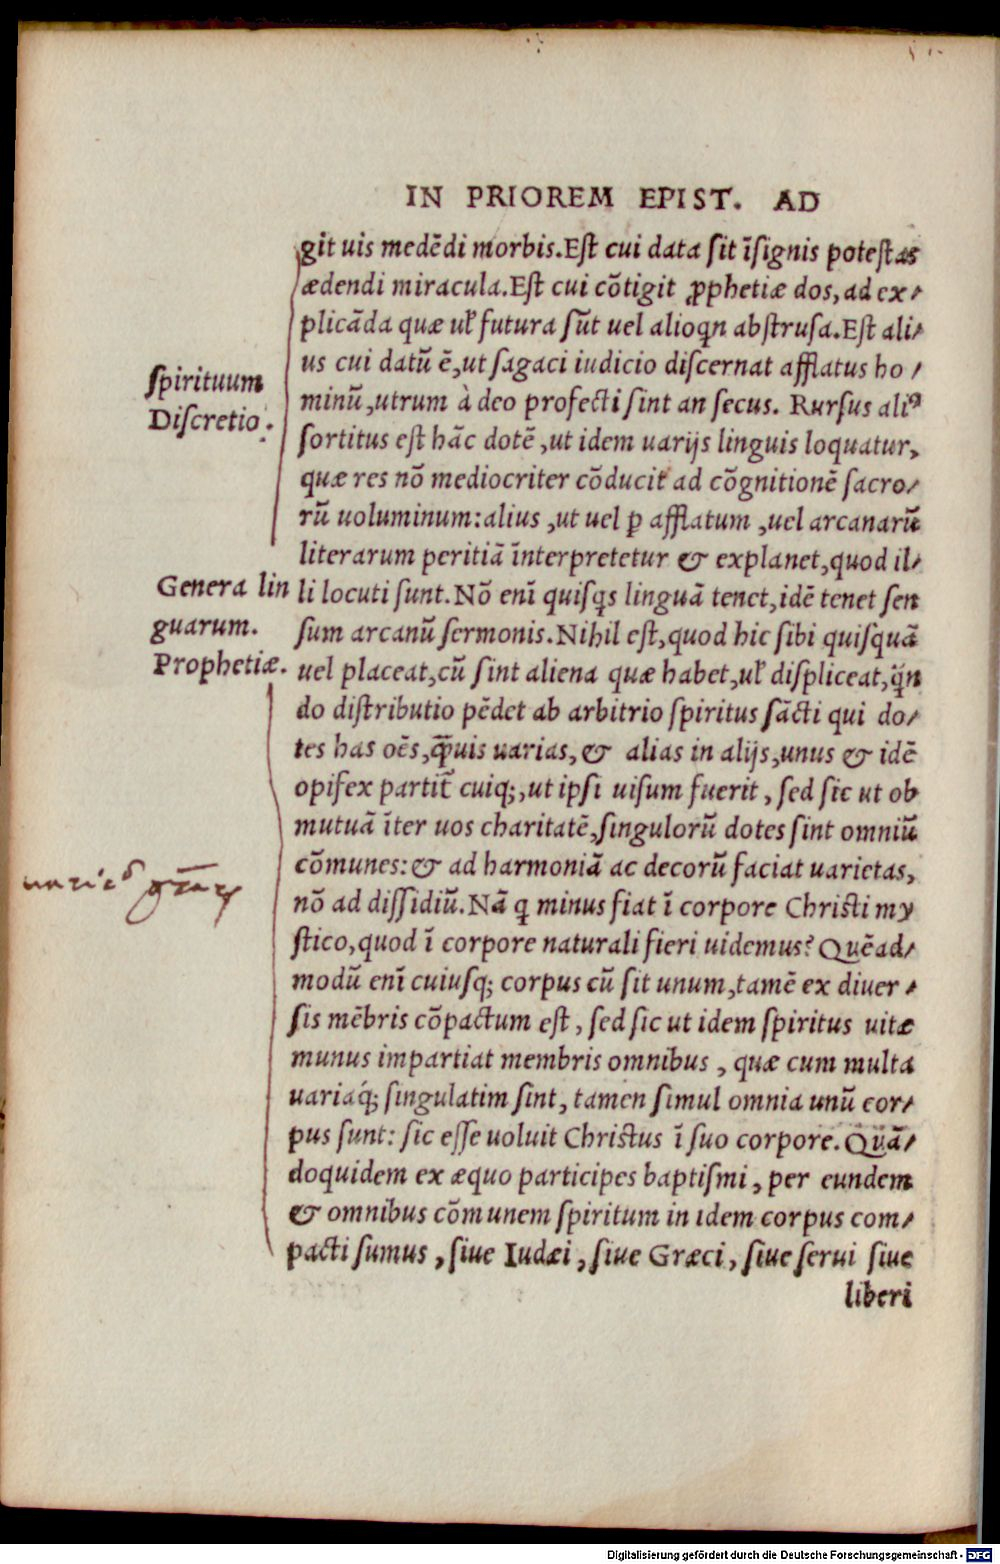 IN PRIOREM EPIST. AD
git uis medēdi morbis. Est cui data sit īsignis potestas
ædendi miracula. Est cui cōtigit ꝓphetiæ dos, ad ex⸗
plicāda quæ uł futura sūt uel alioqn abstrusa. Est ali⸗
us cui datū ē, ut sagaci iudicio discernat afflatus ho⸗
minū, utrum à deo profecti sint an secus. Rursus aliꝰ
sortitus est hāc dotē, ut idem uarijs linguis loquatur,
quæ res nō mediocriter cōducit ad cōgnitionē sacro⸗
rū uoluminum: alius, ut uel ꝑ afflatum, uel arcanarū
literarum peritiā īnterpretetur & explanet, quod il⸗
li locuti sunt. Nō enī quisqs linguā tenet, idē tenet sen
sum arcanū sermonis. Nihil est, quod hic sibi quisquā
uel placeat, cū sint aliena quæ habet, uł displiceat, q̄n
do distributio pēdet ab arbitrio spiritus sācti qui do⸗
tes has oēs, q̄uis uarias, & alias in alijs, unus & idē
opifex partit̄ cuiq;, ut ipsi uisum fuerit, sed sic ut ob
mutuā īter uos charitatē, singulorū dotes sint omniū
cōmunes: & ad harmoniā ac decorū faciat uarietas,
nō ad dissidiū. Nā q minus fiat ī corpore Christi my
stico, quod ī corpore naturali fieri uidemus? Quēad⸗
modū enī cuiusq; corpus cū sit unum, tamē ex diuer⸗
sis mēbris cōpactum est, sed sic ut idem spiritus uitæ
munus impartiat membris omnibus, quæ cum multa
uariaq́; singulatim sint, tamen simul omnia unū cor⸗
pus sunt: sic esse uoluit Christus ī suo corpore. Quā⸗
doquidem ex æquo participes baptismi, per eundem
& omnibus cōmunem spiritum in idem corpus com⸗
pacti sumus, siue Iudæi, siue Græci, siue serui siue
liberi
Spirituum
Discretio.
Genera lin
guarum.
Prophetiæ.
Digitalisierung gefördert durch die Deutsche Forschungsgemeinschaft - DFG